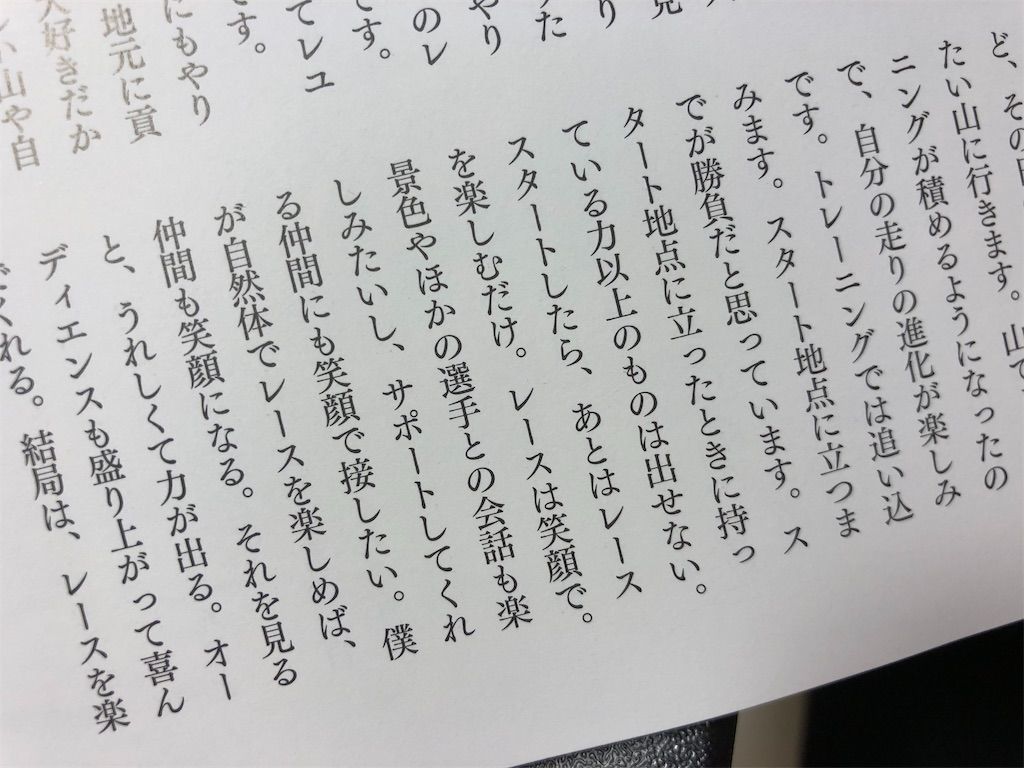 見
り
った
やり
のレ
です。
てレユ
です。
にもやり
地元に貢
大好きだか
しい山や自
ど、その日
たい山に行きます。山で
ニングが積めるようになったの
で、自分の走りの進化が楽しみ
です。トレーニングでは追い込
みます。スタート地点に立つま
でが勝負だと思っています。ス
タート地点に立ったときに持っ
ている力以上のものは出せない。
スタートしたら、あとはレース
を楽しむだけ。レースは笑顔で。
景色やほかの選手との会話も楽
しみたいし、サポートしてくれ
る仲間にも笑顔で接したい。僕
が自然体でレースを楽しめば、
仲間も笑顔になる。それを見る
と、うれしくて力が出る。オー
ディエンスも盛り上がって喜ん
でくれる。結局は、レースを楽